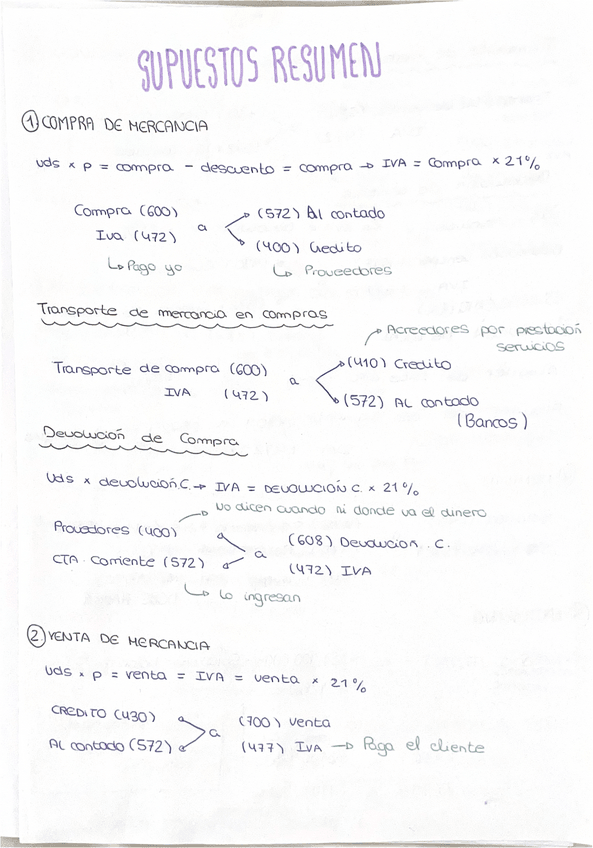 SUPUESTOS RESUMEN
① COMPRA DE MERCANCIA
uds × p = compra - descuento = compra → IVA = Compra × 21%
Compra (600) a (572) Al contado
Iva (472) (400) Credito
↳ Pago yo ↳ Proveedores
Transporte de mercancia en compras
Acreedores por prestación servicios
Transporte de compra (600) a (410) Credito
IVA (472) (572) AL contado
(Bancos)
Devolución de Compra
Uds × devolución C. → IVA = DEVOLUCIÓN C. × 21%
No dicen cuando ni donde va el dinero
Provedores (400) a (608) Devolucion . C.
CTA Corriente (572) (472) IVA
↳ lo ingresan
② VENTA DE MERCANCIA
uds × p = venta = IVA = venta × 21%
CREDITO (430) a (700) Venta
AL contado (572) (477) IVA → Paga el cliente